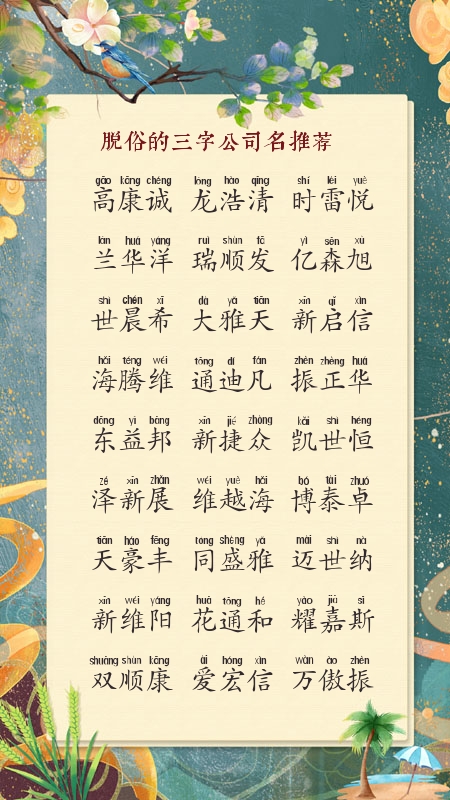 脱俗的三字公司名推荐
gāo kāng chéng lóng hào qīng shí léi yuè
高康诚 龙浩清 时雷悦
lán huá yáng ruì shùn fā yì sēn xù
兰华洋 瑞顺发 亿森旭
shì chén xī dà yǎ tiān xīn qǐ xìn
世晨希 大雅天 新启信
hǎi téng wéi tōng dí fán zhèn zhèng huá
海腾维 通迪凡 振正华
dōng yì bāng xīn jié zhòng kǎi shì héng
东益邦 新捷众 凯世恒
zé xīn zhǎn wéi yuè hǎi bó tài zhuó
泽新展 维越海 博泰卓
tiān háo fēng tóng shèng yǎ mài shì nà
天豪丰 同盛雅 迈世纳
xīn wéi yáng huā tōng hé yào jiā sī
新维阳 花通和 耀嘉斯
shuāng shùn kāng ài hóng xìn wàn ào zhèn
双顺康 爱宏信 万傲振